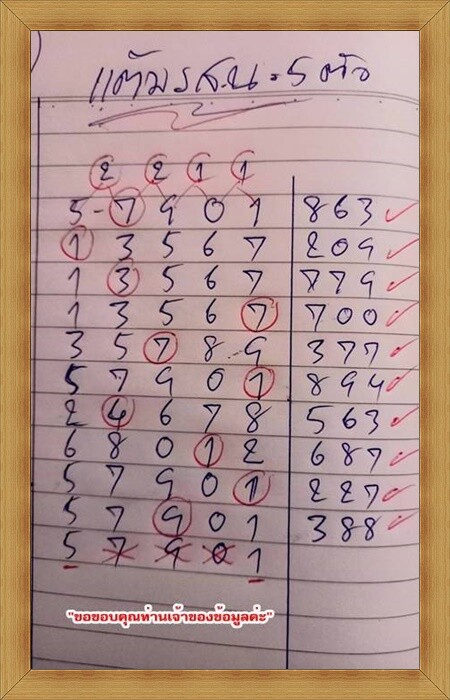 แต้มรสน = 5 ตัว
2 2 1 1
5 - 7 9 0 1 863 ✓
1 3 5 6 7 209 ✓
1 3 5 6 7 779 ✓
1 3 5 6 7 700 ✓
3 5 7 8 - 9 377 ✓
5 7 9 0 1 894 ✓
2 4 6 7 8 563 ✓
6 8 0 1 2 687 ✓
5 7 9 0 1 227 ✓
5 7 9 0 1 388 ✓
5 7 9 0 1
"ขอขอบคุณท่านเจ้าของข้อมูลค่ะ"